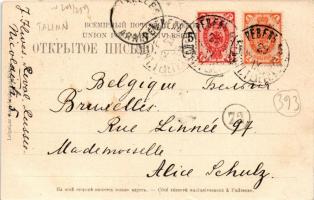 TALINN
ВСЕМІРНЫЙ ПОЧТОВЫЙ
UNION POSTALE UNIVERSELLE
ОТКРЫТОЕ ПИСЬМО
РЕВЕЛЬ
РЕВЕЛЬ
Belgique Бельгія
Bruxelles
Rue Linnée 97
Mademoiselle
Alice Schulz.
73
393
На этой сторонѣ пишется только адресъ. — Côté réservé exclusivement à l'adresse.
Reval Russie